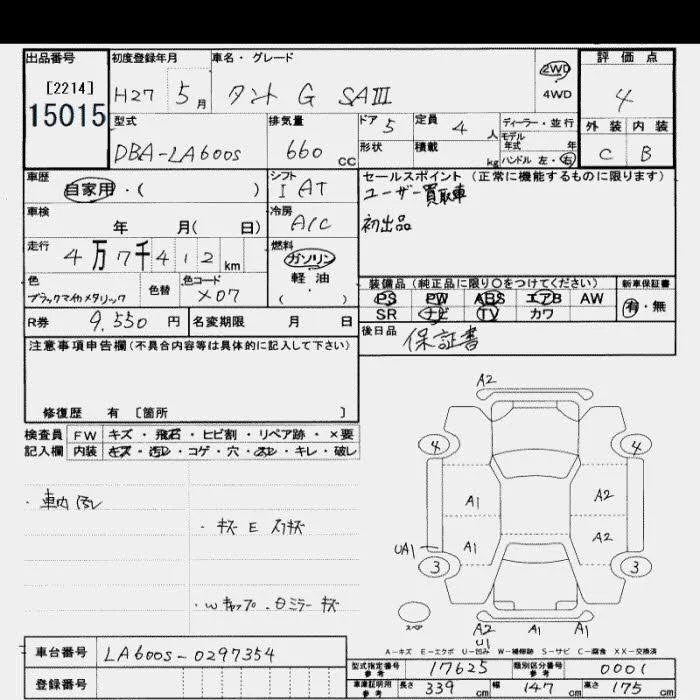 出品番号
[2214]
15015
初度登録年月
H27 5月
車名・グレード
タント G SAⅢ
2WD
4WD
評価点
4
外装 内装
C B
型式
DBA-LA600S
排気量
660 CC
ドア 5
形状
定員 4 人
積載 kg
ディーラー・並行
モデル年式 年
ハンドル 左・右
車歴
自家用・( )
シフト
I AT
セールスポイント(正常に機能するものに限ります)
ユーザー買取車
初出品
車検
年 月( 日)
冷房
A/C
走行
4万7千412km
燃料
ガソリン
軽油
( )
色
ブラックマイカメタリック
色替
色コード
X07
装備品(純正品に限り○をつけてください)
PS PW ABS エアB AW
SR ナビ TV カワ
新車保証書
有・無
R券 9,550円
名変期限 月 日
後日品
保証書
注意事項申告欄(不具合内容等は具体的に記入して下さい)
修復歴 有 [箇所 ]
検査員
記入欄
FW キズ・飛石・ヒビ割・リペア跡・×要
内装 キズ・汚レ・コゲ・穴・ヌレ・キレ・破レ
・車内汚レ
・キズ E スリキズ
・Wキャップ・Dミラーキズ
A2
4 4
A1 A2
A1 A2
UA1
3 3
スペア
A2 A1 A1
U1
A-キズ E-エクボ U-凹み W-補修跡 S-サビ C-腐食 XX-交換済
車台番号 LA600S-0297354
登録番号
型式指定番号
参考
17625
類別区分番号
参考
0001
車庫証明用
参考
長さ 339 cm
幅 147 cm
高さ 175 cm